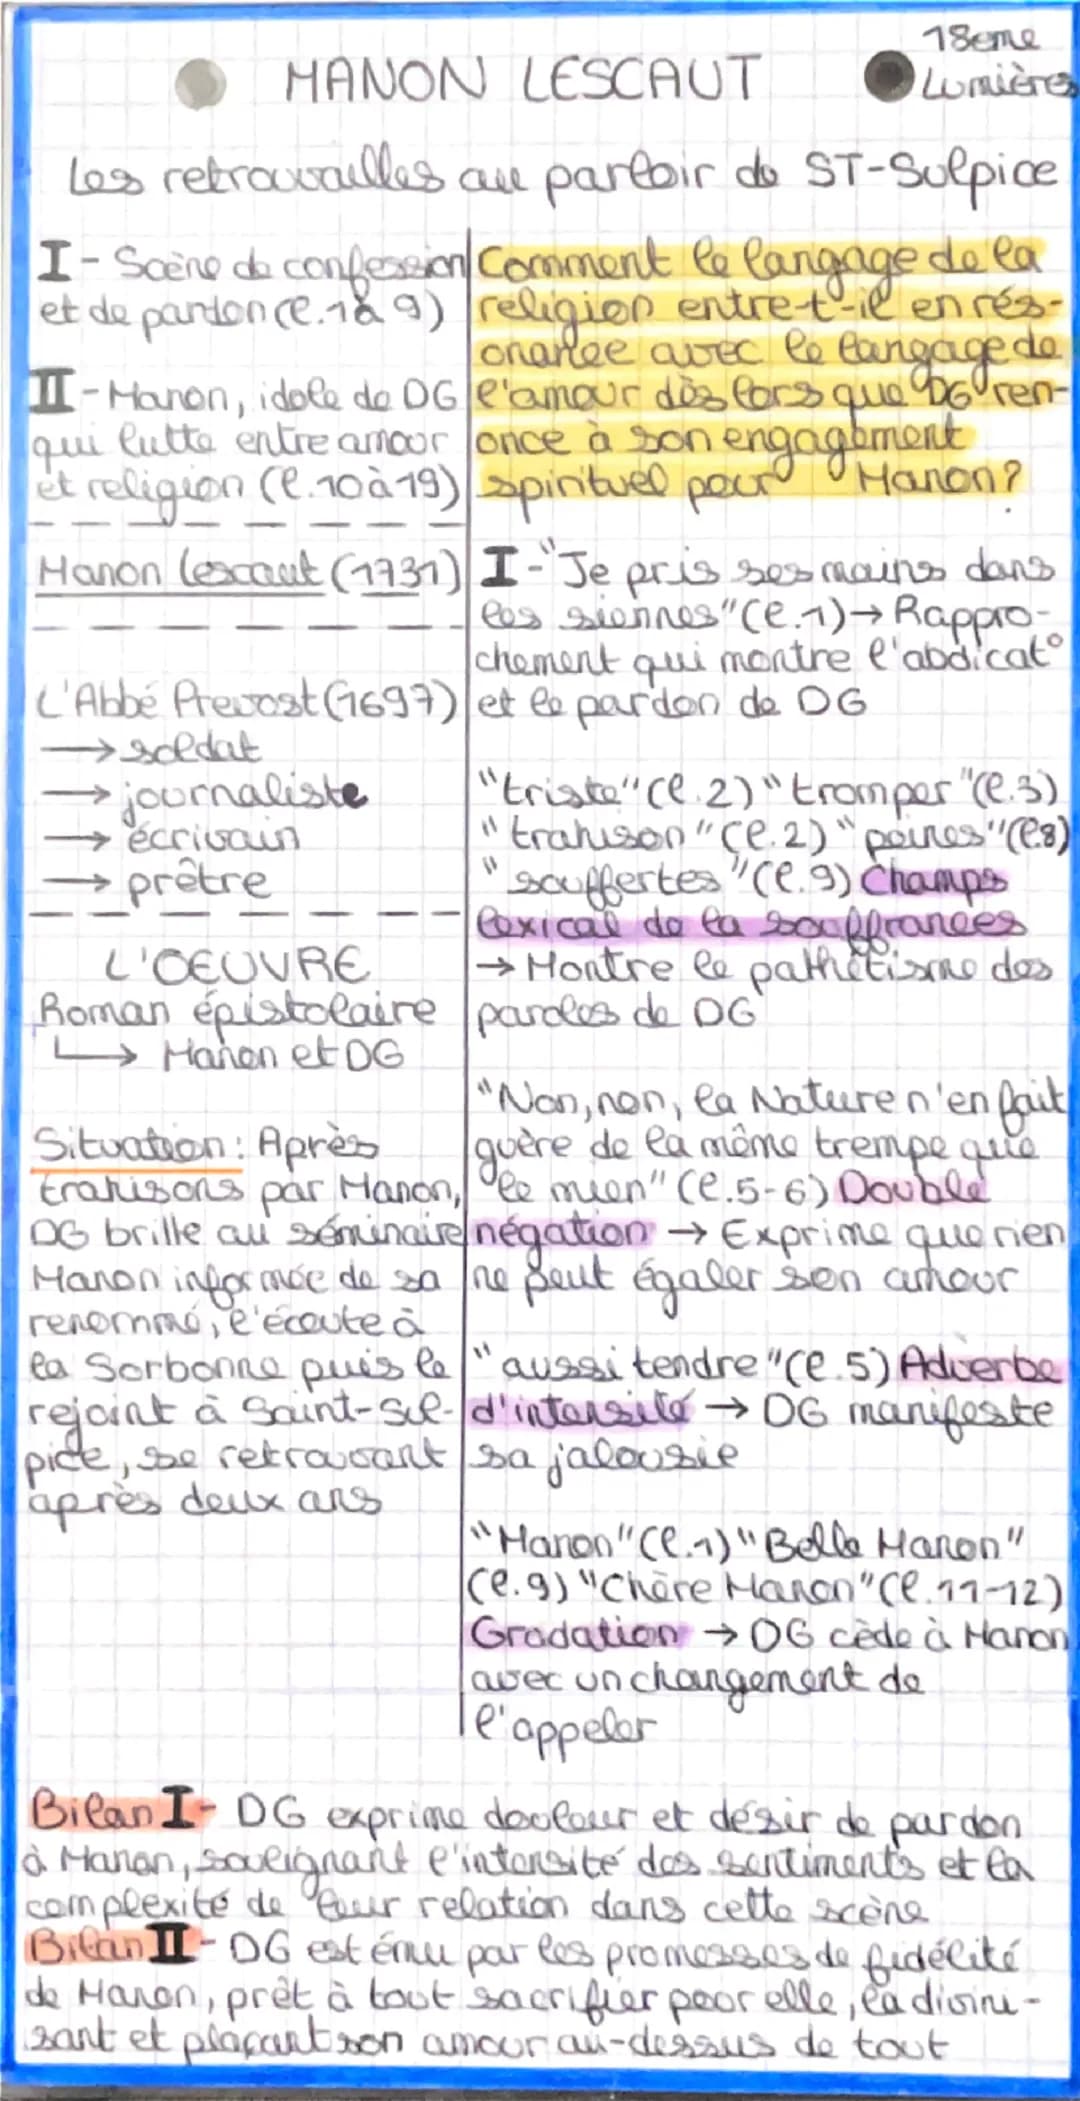 18eme
Lumières
MANON LESCAUT
Les retrouvailles au parloir de ST-Sulpice
I - Scène de confession
et de pardon (l.1 à 9)
II - Manon, idole de DG
qui lutte entre amour
et religion (l.10 à 19)
Manon Lescaut (1731)
L'Abbé Prevost (1697)
→ soldat
→ journaliste
→ écrivain
→ prêtre
L'OEUVRE
Roman épistolaire
↳ Manon et DG
Situation : Après
trahisons par Manon,
DG brille au séminaire
Manon informée de sa
renommé, l'écoute à
la Sorbonne puis le
rejoint à Saint-Sul-
pice, se retrouvant
après deux ans
Comment le langage de la
religion entre-t-il en rés-
onance avec le langage de
l'amour dès lors que DG ren-
once à son engagement
spirituel pour Manon?
I - "Je pris ses mains dans
les siennes" (l.1) → Rappro-
chement qui montre l'abdicat°
et le pardon de DG
"triste" (l.2) "tromper" (l.3)
"trahison" (l.2) "peines" (l.8)
"souffertes" (l.9) Champs
lexical de la souffrances
→ Montre le pathétisme des
paroles de DG
"Non, non, la Nature n'en fait
guère de la même trempe que
le mien" (l.5-6) Double
négation → Exprime que rien
ne peut égaler son amour
"aussi tendre" (l.5) Adverbe
d'intensité → DG manifeste
sa jalousie
"Manon" (l.1) "Belle Manon"
(l.9) "Chère Manon" (l.11-12)
Gradation → DG cède à Manon
avec un changement de
l'appeler
Bilan I - DG exprime douleur et désir de pardon
à Manon, soulignant l'intensité des sentiments et la
complexité de leur relation dans cette scène
Bilan II - DG est ému par les promesses de fidélité
de Manon, prêt à tout sacrifier pour elle, la divini-
sant et plaçant son amour au-dessus de tout